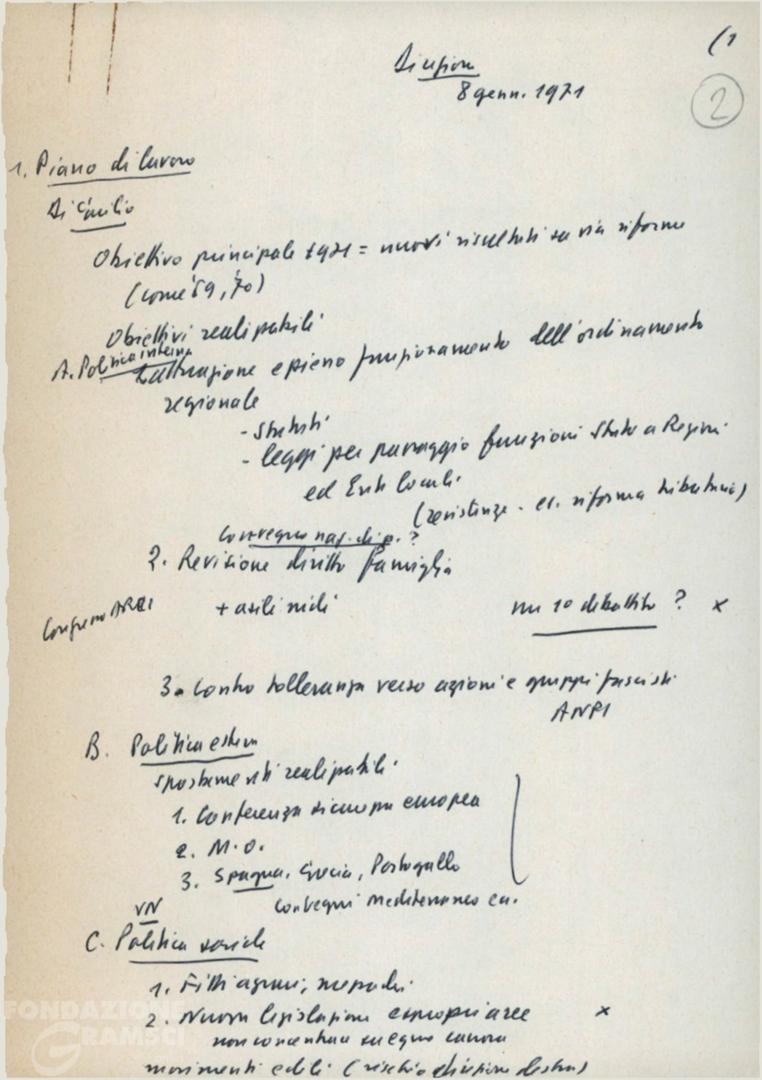 (1
Direzione
8 genn. 1971
2
1. Piano di lavoro
Di Giulio
Obiettivo principale 1971 = nuovi risultati su via riforme
(come '69, '70)
Obiettivi realizzabili
A. Politica interna
1. attuazione e pieno funzionamento dell'ordinamento
regionale
- Statuti
- leggi per passaggio funzioni Stato a Regioni
ed Enti locali.
(resistenze - es. riforma tributaria)
Convegno naz. di p. ?
2. Revisione diritto famiglia
Congresso ARCI
+ asili nidi
su 10 dibattito ? x
3. Contro tolleranza verso azioni e gruppi fascisti
ANPI
B. Politica estera
spostamenti realizzabili
1. Conferenza sicurezza europea
2. M.O.
3. Spagna, Grecia, Portogallo
Convegni Mediterraneo ecc.
VN
C. Politica sociale
1. Fitti agrari, mezzadri.
2. Nuova legislazione esproprio aree x
non concentrata
movimenti edili (rischio divisione destra)
FONDAZIONE
GRAMSCI